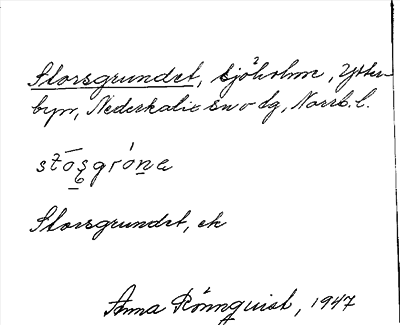 Storsgrundet, Sjöholme, Ytter-
byn, Nederkalix sn o dg, Norrb. l.
stōs̱gróṉa
Storsgrundet, ek
Anna Rönnquist, 1947